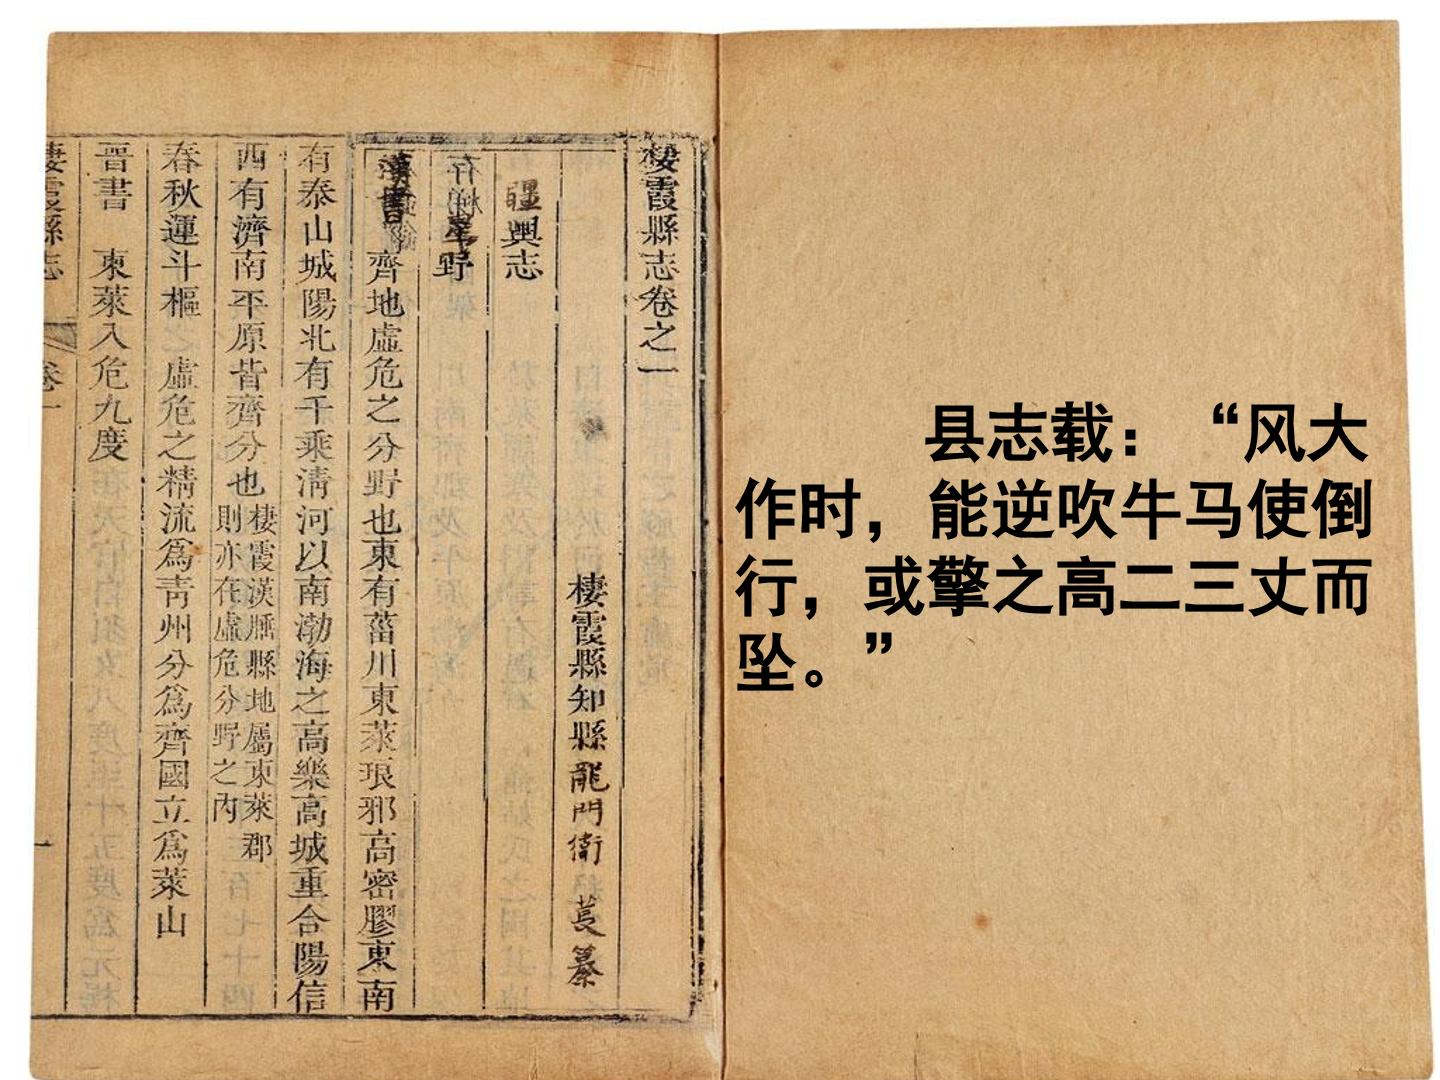 棲霞縣志卷之一
棲霞縣知縣龍門衛萇纂
疆輿志
星野
漢書　齊地虛危之分野也東有菑川東萊琅邪高密膠東南
有泰山城陽北有千乘淸河以南渤海之高樂高城重合陽信
西有濟南平原皆齊分也棲霞漢腄縣地屬東萊郡
則亦在虛危分野之內
春秋運斗樞　虛危之精流爲靑州分爲齊國立爲萊山
晉書　東萊入危九度
棲霞縣志　卷一　一
县志载：“风大
作时，能逆吹牛马使倒
行，或擎之高二三丈而
坠。”